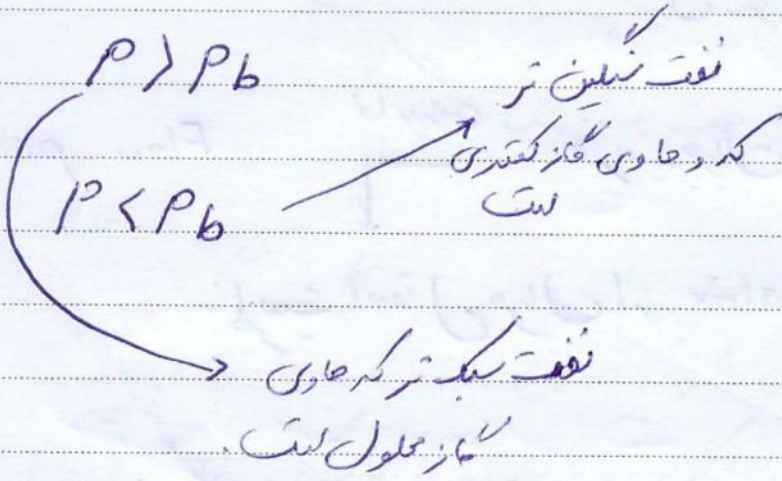 P > Pb
نفت سنگین تر
که و حاوی گاز کمتری
است
P < Pb
نفت سبک تر که حاوی
گاز محلول است.